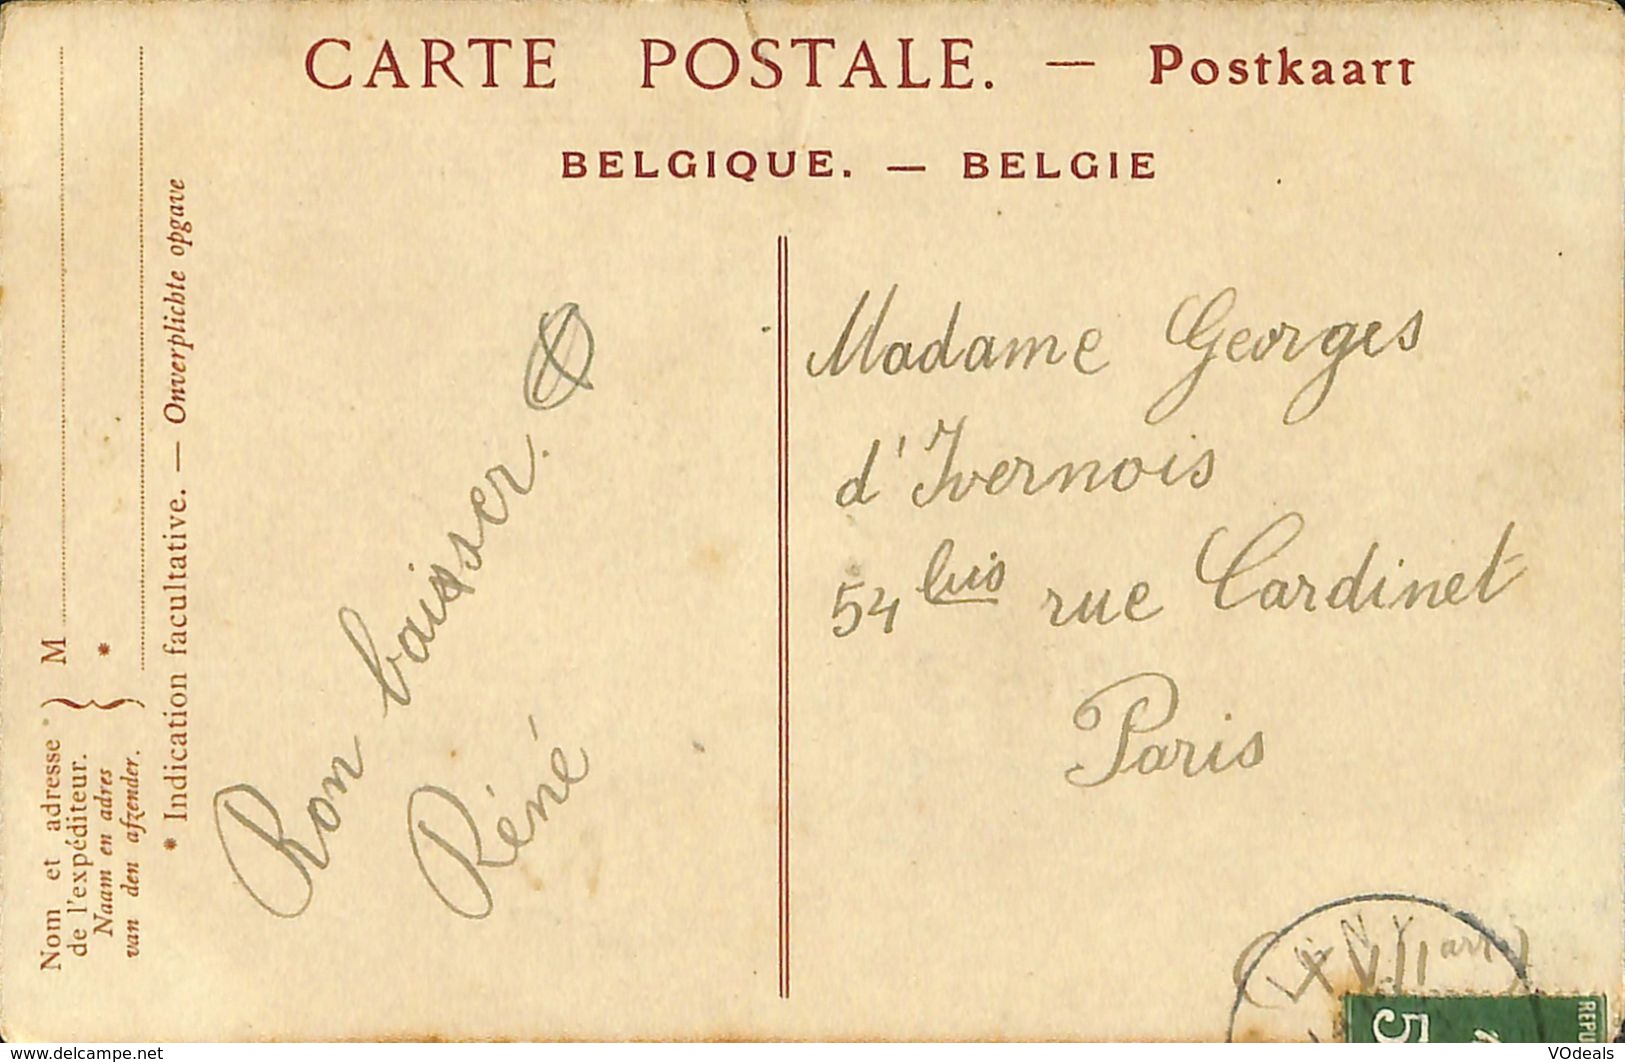 CARTE POSTALE. — Postkaart
BELGIQUE. — BELGIE
Nom et adresse
de l'expéditeur.
Naam en adres
van den afzender.
M
*
* Indication facultative. — Onverplichte opgave
Bon baisser.
Réné
Madame Georges
d'Ivernois
54 bis rue Cardinet
Paris
(XVII arr.)
5
REPU
delcampe.net
VOdeals